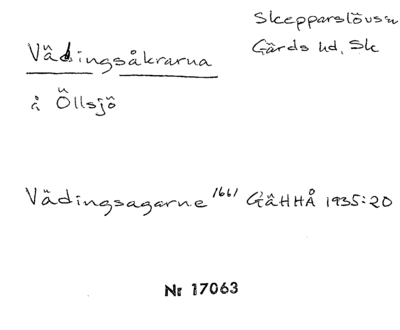 Skepparslövs sn
Gärds hd, Sk
Vädingsåkrarna
å Öllsjö
Vädingsagarne 1661 GÄHHÅ 1935:20
Nr 17063